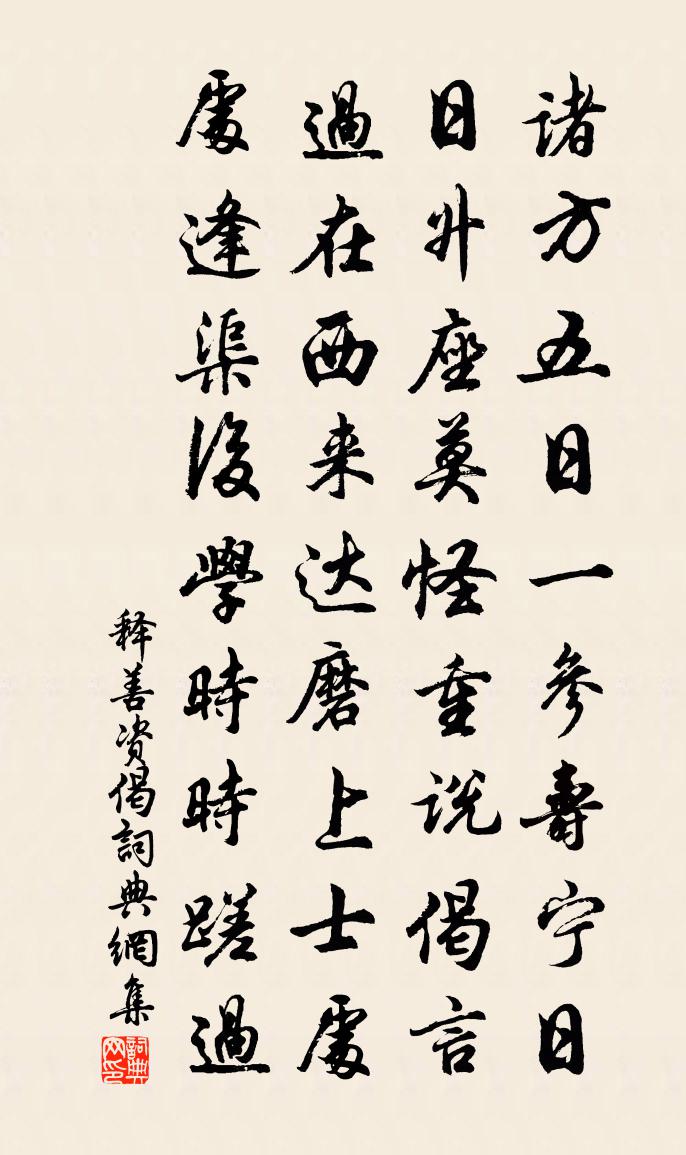 諸方五日一參壽宁日
日升座莫怪重说偈言
過在西来达磨上士處
處逢渠後學時時蹉過
释善资偈詞典網集
詞典网印